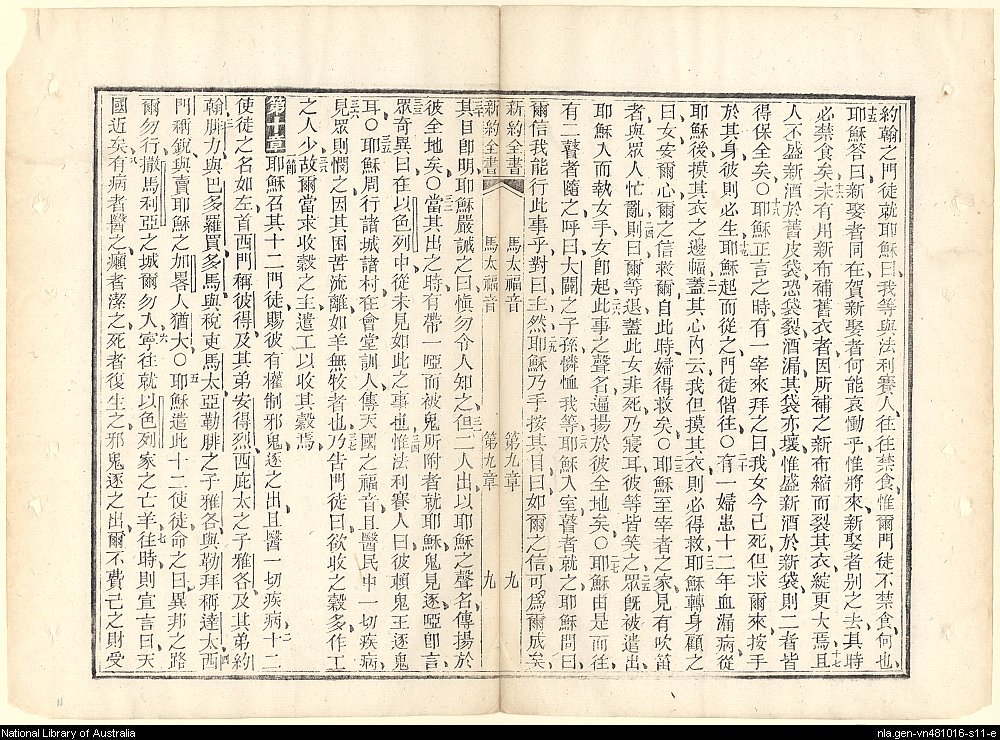 約翰之門徒就耶穌曰我等與法利賽人往往禁食惟爾門徒不禁食何也
十五耶穌答曰新娶者同在賀新娶者何能哀慟乎惟將來新娶者別之去其時
必禁食矣十六未有用新布補舊衣者因所補之新布縮而裂其衣綻更大焉十七且
人不盛新酒於舊皮袋恐袋裂酒漏其袋亦壞惟盛新酒於新袋則二者皆
得保全矣〇十八耶穌正言之時有一宰來拜之曰我女今已死但求爾來按手
於其身彼則必生十九耶穌起而從之門徒偕往〇二十有一婦患十二年血漏病從
耶穌後摸其衣之邊幅二一蓋其心內云我但摸其衣則必得救二二耶穌轉身顧之
曰女安爾心爾之信救爾自此時婦得救矣〇二三耶穌至宰者之家見有吹笛
者與眾人忙亂二四則曰爾等退蓋此女非死乃寢耳彼等皆笑之二五眾既被遣出
耶穌入而執女手女即起二六此事之聲名遍揚於彼全地矣〇二七耶穌由是而往
有二瞽者隨之呼曰大闢之子孫憐恤我等二八耶穌入室瞽者就之耶穌問曰
爾信我能行此事乎對曰主然二九耶穌乃手按其目曰如爾之信可為爾成矣
新約全書 馬太福音 第九章 九
新約全書 馬太福音 第九章 九
三十其目即明耶穌嚴誡之曰慎勿令人知之三一但二人出以耶穌之聲名傳揚於
彼全地矣〇三二當其出之時有帶一啞而被鬼所附者就耶穌三三鬼見逐啞即言
眾奇異曰在以色列中從未見如此之事也三四惟法利賽人曰彼賴鬼王逐鬼
耳〇三五耶穌周行諸城諸村在會堂訓人傳天國之福音且醫民中一切疾病
三六見眾則憫之因其困苦流離如羊無牧者也三七乃告門徒曰欲收之穀多作工
之人少三八故爾當求收穀之主遣工以收其穀焉
第十章一節耶穌召其十二門徒賜彼有權制邪鬼逐之出且醫一切疾病二十二
使徒之名如左首西門稱彼得及其弟安得烈西庇太之子雅各及其弟約
翰三腓力與巴多羅買多馬與稅吏馬太亞勒腓之子雅各與勒拜稱達太四西
門稱銳與賣耶穌之加畧人猶大〇五耶穌遣此十二使徒命之曰異邦之路
爾勿行撒馬利亞之城爾勿入六寧往就以色列家之亡羊七往時則宣言曰天
國近矣八有病者醫之癩者潔之死者復生之邪鬼逐之出爾不費己之財受
National Library of Australia
nla.gen-vn481016-s11-e